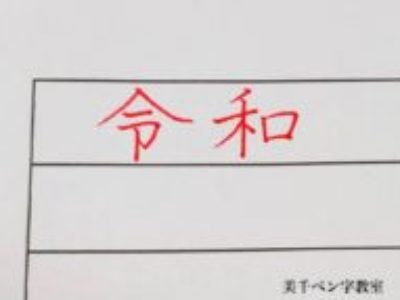 令和
美千ペン字教室